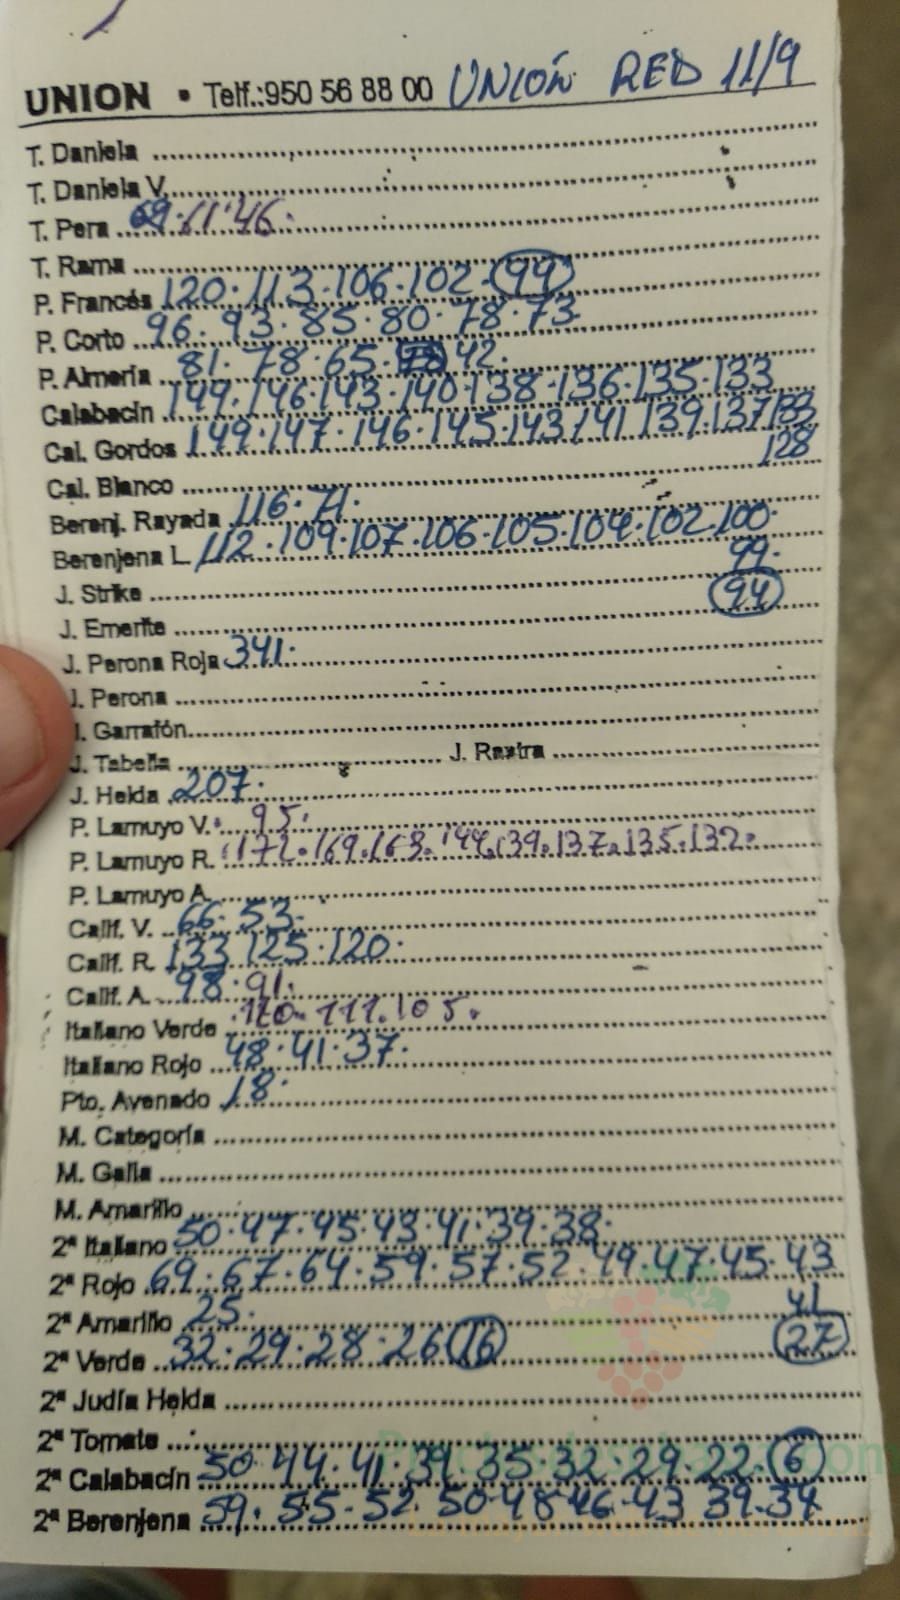 UNION • Telf.:950 56 88 00 UNIÓN RED 11/9
T. Daniela
T. Daniela V.
T. Pera 69.61.46.
T. Rama
P. Francés 120.113.106.102.(99)
P. Corto 96.93.85.80.78.73
P. Almería 81.78.65. 42.
Calabacín 149.146.143.140.138.136.135.133
Cal. Gordos 149.147.146.145.143.141.139.137.133
128
Cal. Blanco
Berenj. Rayada 116.71.
Berenjena L. 112.109.107.106.105.104.102.100.
99.
J. Strike
(94)
J. Emerite
J. Perona Roja 341.
J. Perona
J. Garrafón
J. Tabella J. Rastra
J. Helda 207.
P. Lamuyo V. 95.
P. Lamuyo R. 172.169.163.144.139.137.135.132.
P. Lamuyo A.
Calif. V. 66.53.
Calif. R. 133.125.120.
Calif. A. 98.91.
Italiano Verde 120.111.105.
Italiano Rojo 48.41.37.
Pto. Avenado 18.
M. Categoría
M. Galia
M. Amarillo
2ª Italiano 50.47.45.43.41.39.38.
2ª Rojo 69.67.64.59.57.52.49.47.45.43
41
2ª Amarillo 25.
(27)
2ª Verde 32.29.28.26(16)
2ª Judía Helda
2ª Tomate
2ª Calabacín 50.44.41.39.35.32.29.22.(6)
2ª Berenjena 59.55.52.50.48.46.43.39.34